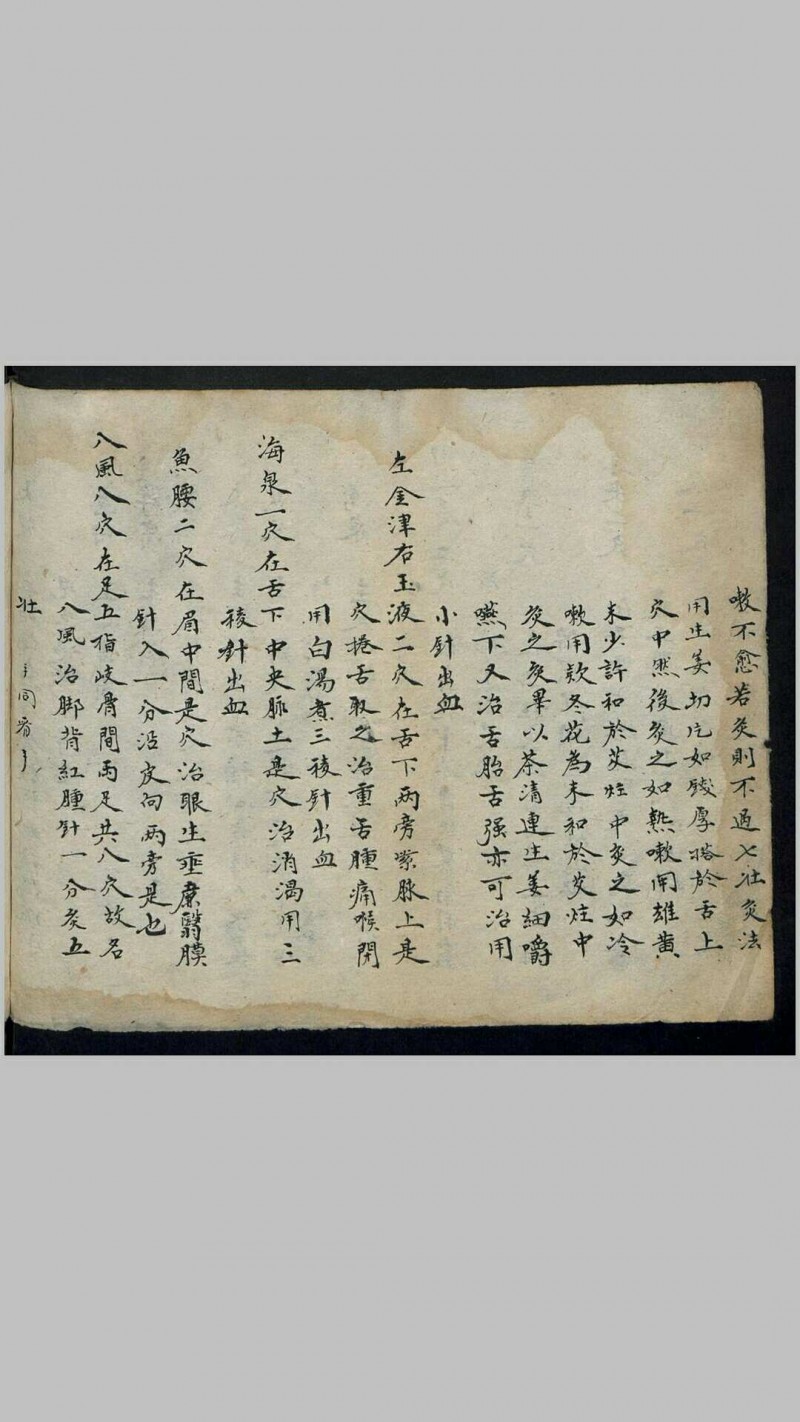 嗽不愈若灸則不過七壯灸法
用生姜切片如錢厚搭於舌上
穴中然後灸之如熱嗽用雄黄
末少許和於艾炷中灸之如冷
嗽用欵冬花為末和於艾炷中
灸之灸畢以茶清連生姜細嚼
嚥下又治舌胎舌强亦可治用
小針出血
左金津右玉液二穴在舌下两旁紫脉上是
穴捲舌取之治重舌腫痛喉閉
用白湯煮三稜針出血
海泉一穴在舌下中央脉土是穴治消渴用三
稜針出血
魚腰二穴在眉中間是穴治眼生垂簾翳膜
針入一分沿皮向两旁是也
八風八穴在足五指歧骨間両足共八穴故名
八風治脚背紅腫針一分灸五
壯